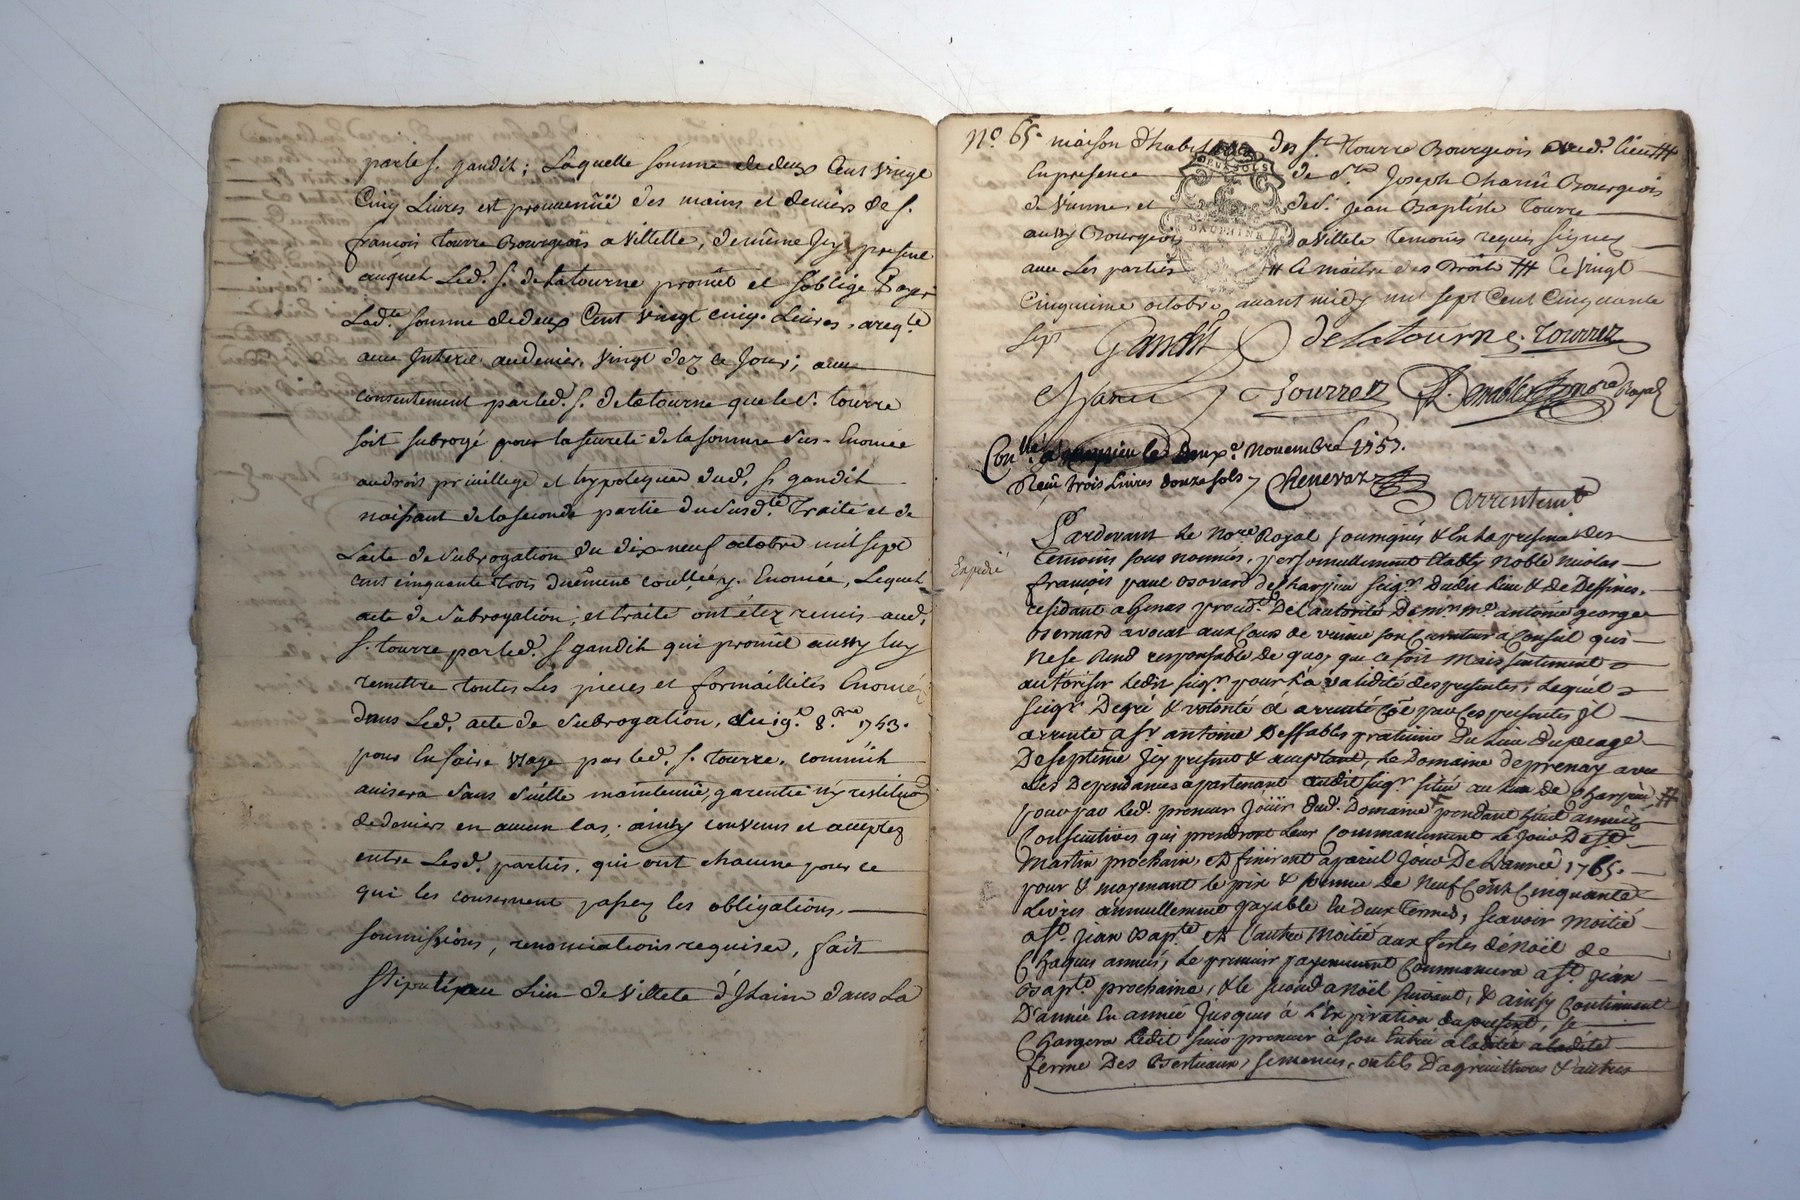 par le s. gandit; Laquelle somme de deux Cent vingt
Cinq Livres est provenüe des mains et deniers de s.
francois tourre Bourgeois a villette, de même Icy present
auquel Led. s. delatourne promet et s'oblige Payer
Lad.te somme de deux Cent vingt cinq Livres, a req.te
avec Interet au denier vingt dez ce Jour; avec
consentement par led. s. delatourne que le s. tourre
soit subrogé pour la sureté de la somme sus-Enoncée
au droit privillege et hypoteque dud. s. gandit
naissant de la seconde partie du susd.t Traité et de
L'acte de Subrogation du dix-neuf octobre mil sept
cent cinquante trois Enoncée, Lequel
acte de Subrogation, et traite ont étez remis aud.
s. tourre par led. s. gandit qui promet aussy luy
remettre toutes Les pieces et formallites Enoncé
dans Led. acte de Subrogation, du 19.e 8.bre 1753.
pour En faire usage par led. s. tourre, comm'il
avisera Sans maintenüe, garentie ny restitution
de deniers en aucun Cas, ainsy convenus et acceptez
entre Lesd. parties, qui ont chacune pour ce
qui les concernent passez les obligations,
soumissions, renonciations requises, fait
stipulé au Lieu de Villete d'Anthon dans La
N.o 65. maison d'habit des s.r Tourre Bourgeois aud. lieu
En presence de s.r Joseph Chanü Bourgeois
de Vienne et de s. Jean Baptiste tourre
aussy Bourgeois a villete temoins requis signez
DEUX SOLS
DAUPHINÉ
avec Les parties Ce vingt
Cinquieme octobre avant midy mil sept Cent Cinquante
sept Gandit delatourne. tourrez
Chanu Tourrez Royal
Con.lé a le Deux.e novembre 1757.
Reçu trois Livres douze sols Chenevaz
Arrentem.t
Pardevant Le No.re Royal soussignés & En la presence des
Expedié
temoins sous nommés, personnellement Etably Noble nicolas
françois paul Bovard de Charpieu seig.r Dudit lieu & de Dessines,
residant a proced.t De L'autorité De m.re antoine george
Bernard avocat aux Cours de vienne son Curateur a Conseil qui
Ne se Rend responsable de quoy que ce soit mais seulement
autoriser Ledit seig.r pour La validité des presentes, Lequel
seig.r De gré & volonté a arrenté Et par Ces presentes Il
arrente a s.r antoine Deffables praticien Du Lieu Dupeage
De septeme Icy present & acceptant, Le Domaine de prenay avec
Les Dependances apartenant audit seig.r situé au Lieu de Charpieu,
pour par Led. preneur Jouir Dud. Domaine pendant huit années
Consecutives qui prendront leur Commencement Le Jour De s.t
Martin prochain, Et finiront a pareil Jour De L'année 1765.
pour & moyenant le prix & somme de Neuf Cent Cinquante
Livres annuellement payable En Deux termes, scavoir moitié
a s.t jean Bapt.e Et L'autre Moitié aux festes de Noël de
Chaque années, Le premier payement Commencera a s.t Jean
Bapt.e prochaine, & le second a Noël suivant, & ainsy Continuant
D'année En année Jusques à L'Expiration du present, se
Chargera Ledit sieur preneur à son Entrée a ladite
ferme Des Bestiaux, semences, outils D'agriculture & autres